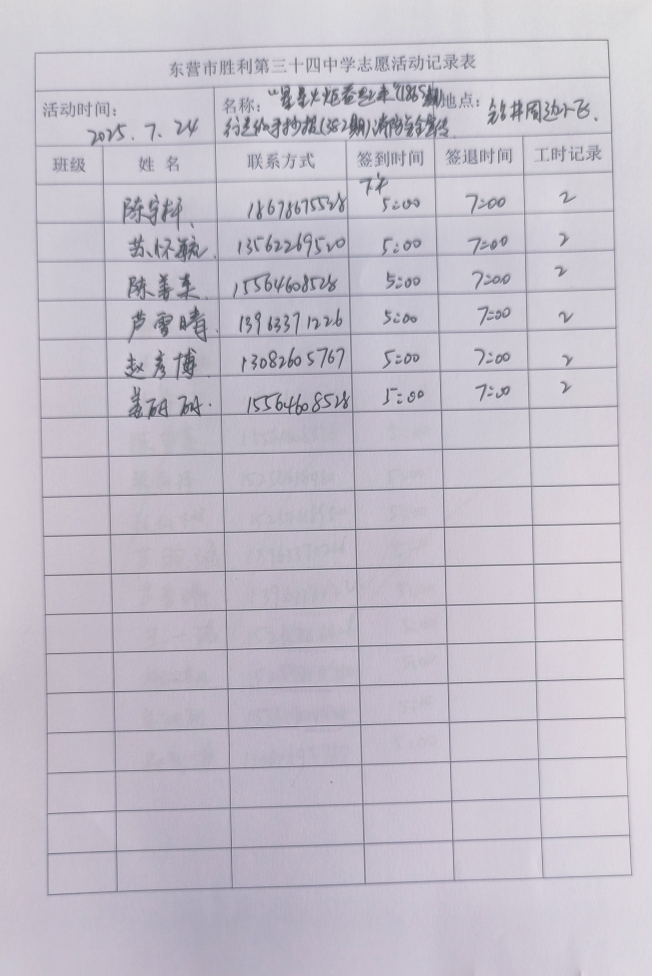 东营市胜利第三十四中学志愿活动记录表
活动时间： 2025.7.24
名称：“星星火炬 行走的手抄报(382期)消防安全宣传
地点： 钻井周边小区
班级 姓名 联系方式 签到时间 签退时间 工时记录
陈宇轩 18678675528 下午5:00 7:00 2
苏怀毓 13562269520 5:00 7:00 2
陈善美 15564608528 5:00 7:00 2
芦雪晴 13963371226 5:00 7:00 2
赵彦博 13082605767 5:00 7:00 2
姜研研 15564608528 5:00 7:00 2